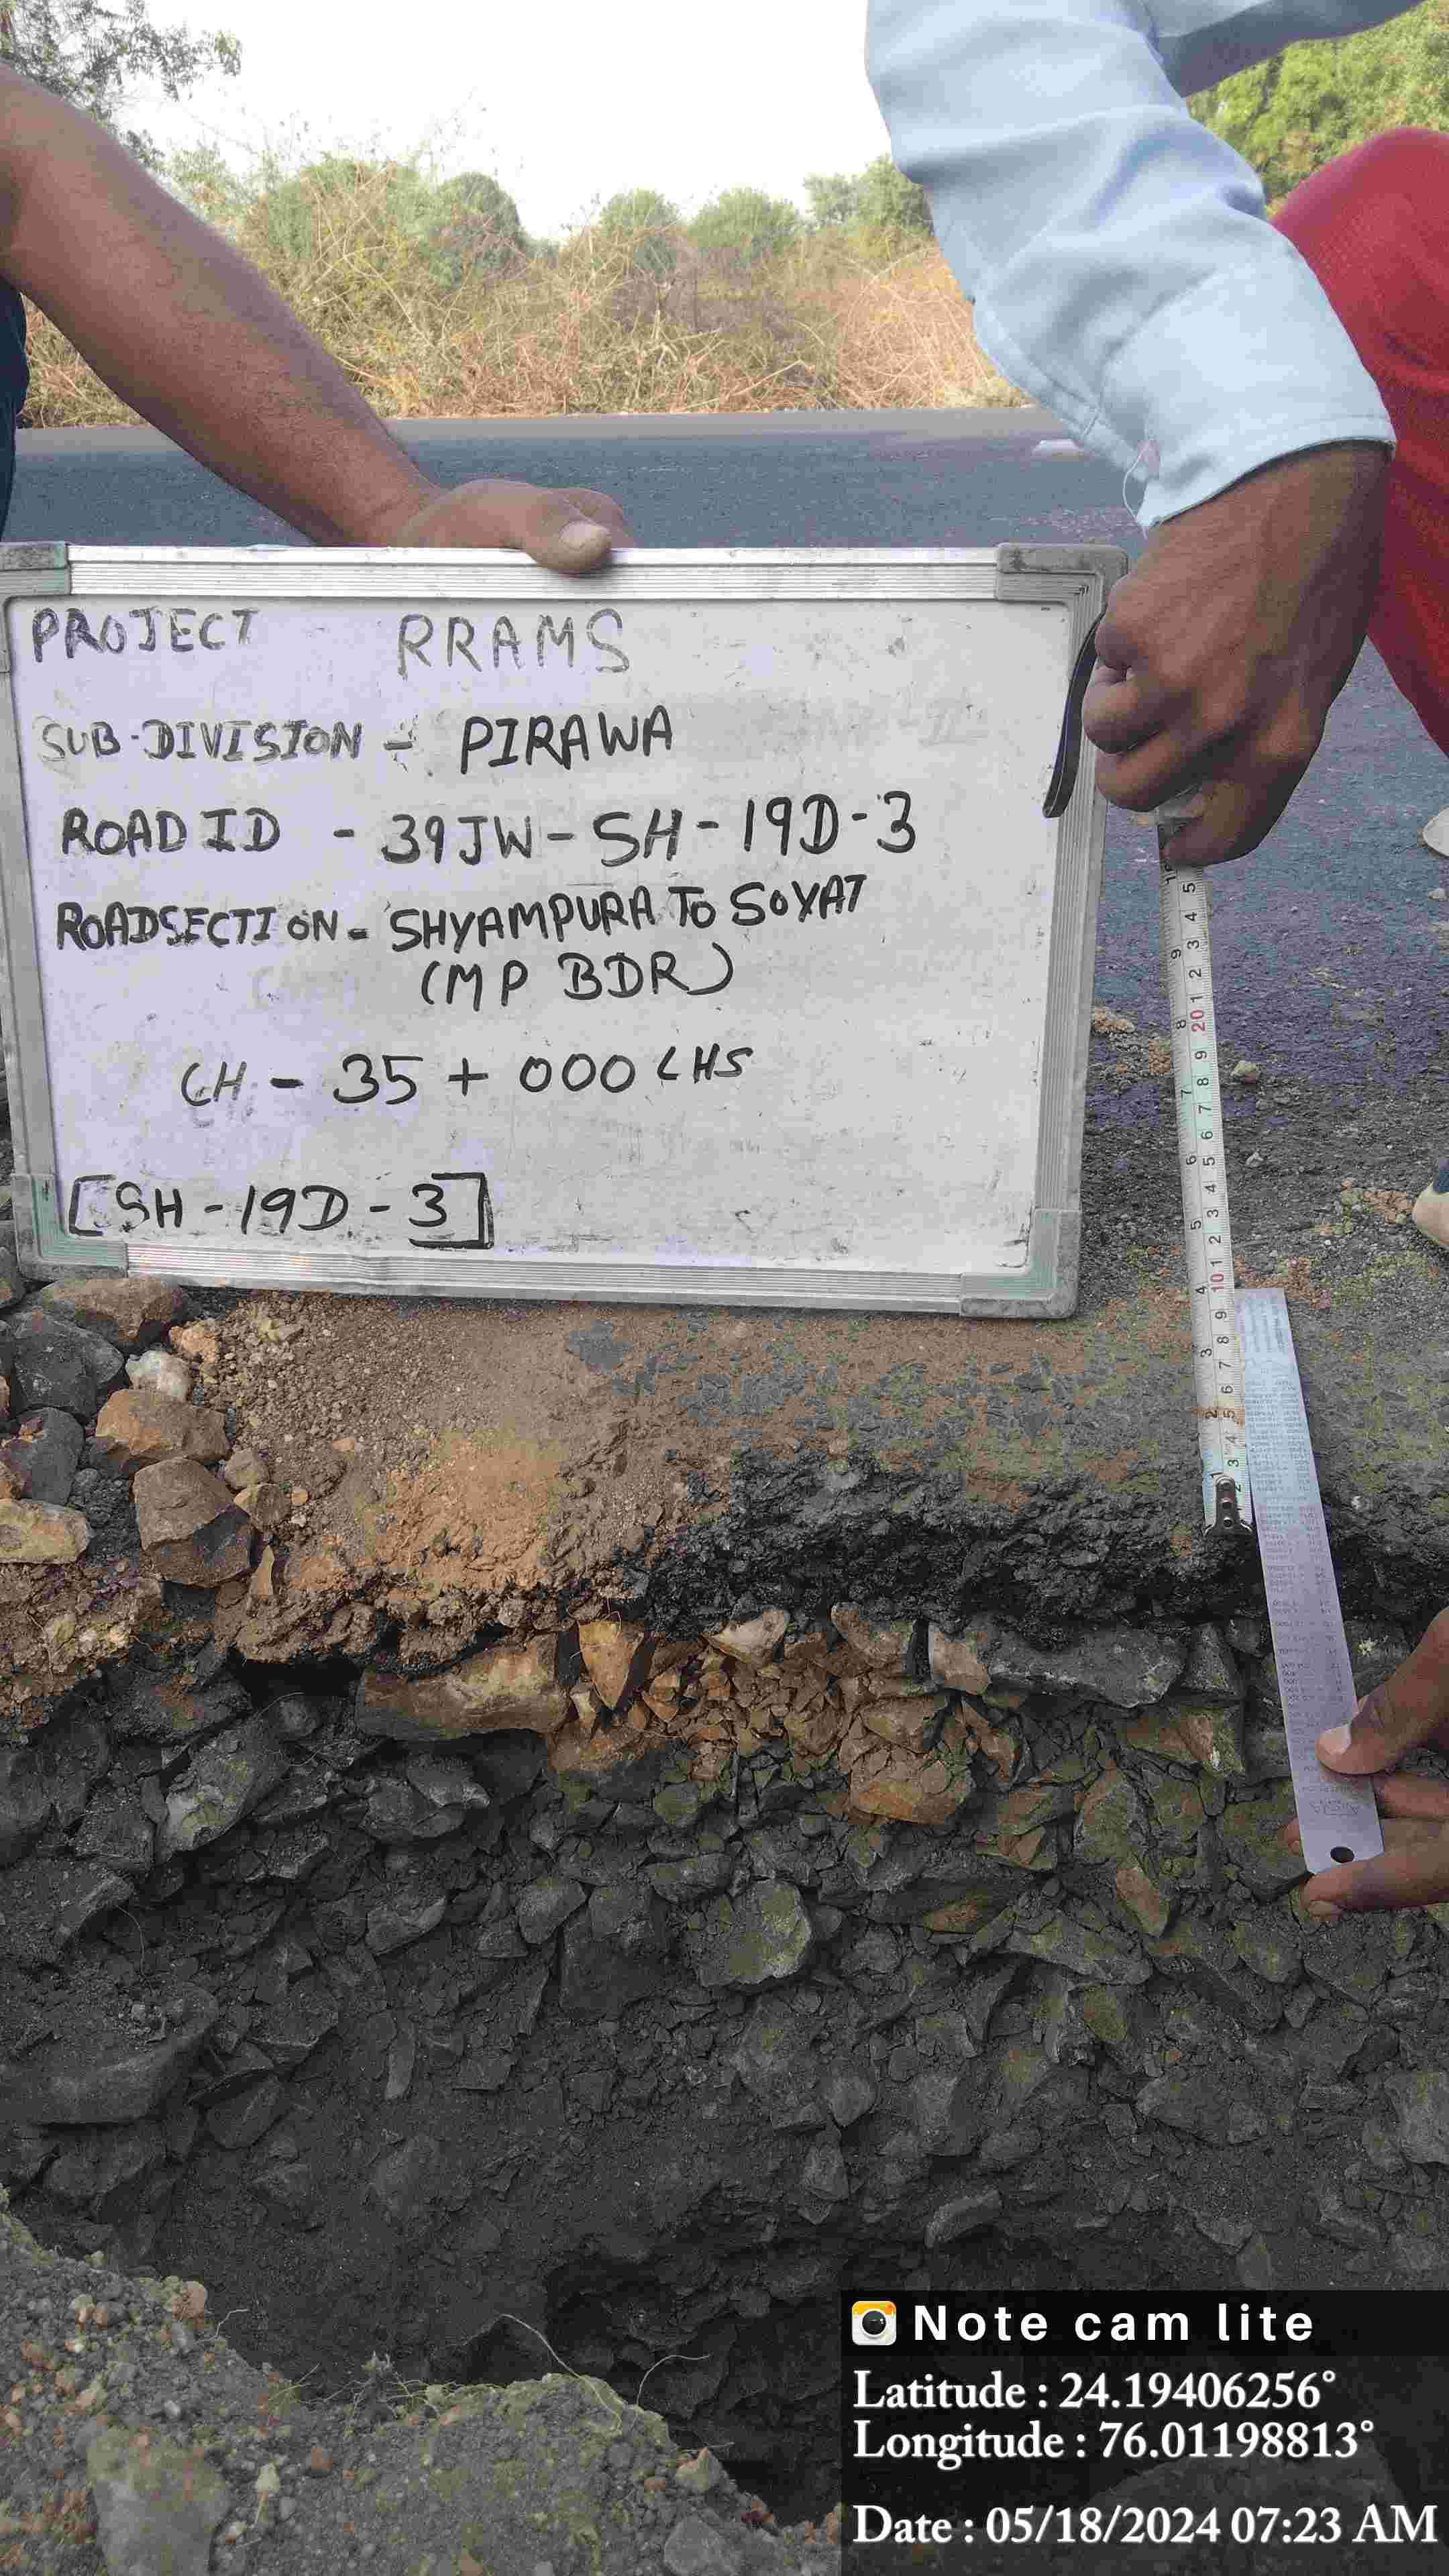 PROJECT RRAMS
SUB-DIVISION - PIRAWA
ROAD ID - 39JW-SH-19D-3
ROADSECTION - SHYAMPURA TO SOYAT
(MP BDR)
CH - 35 + 000 LHS
[SH-19D-3]
Note cam lite
Latitude : 24.19406256°
Longitude : 76.01198813°
Date : 05/18/2024 07:23 AM